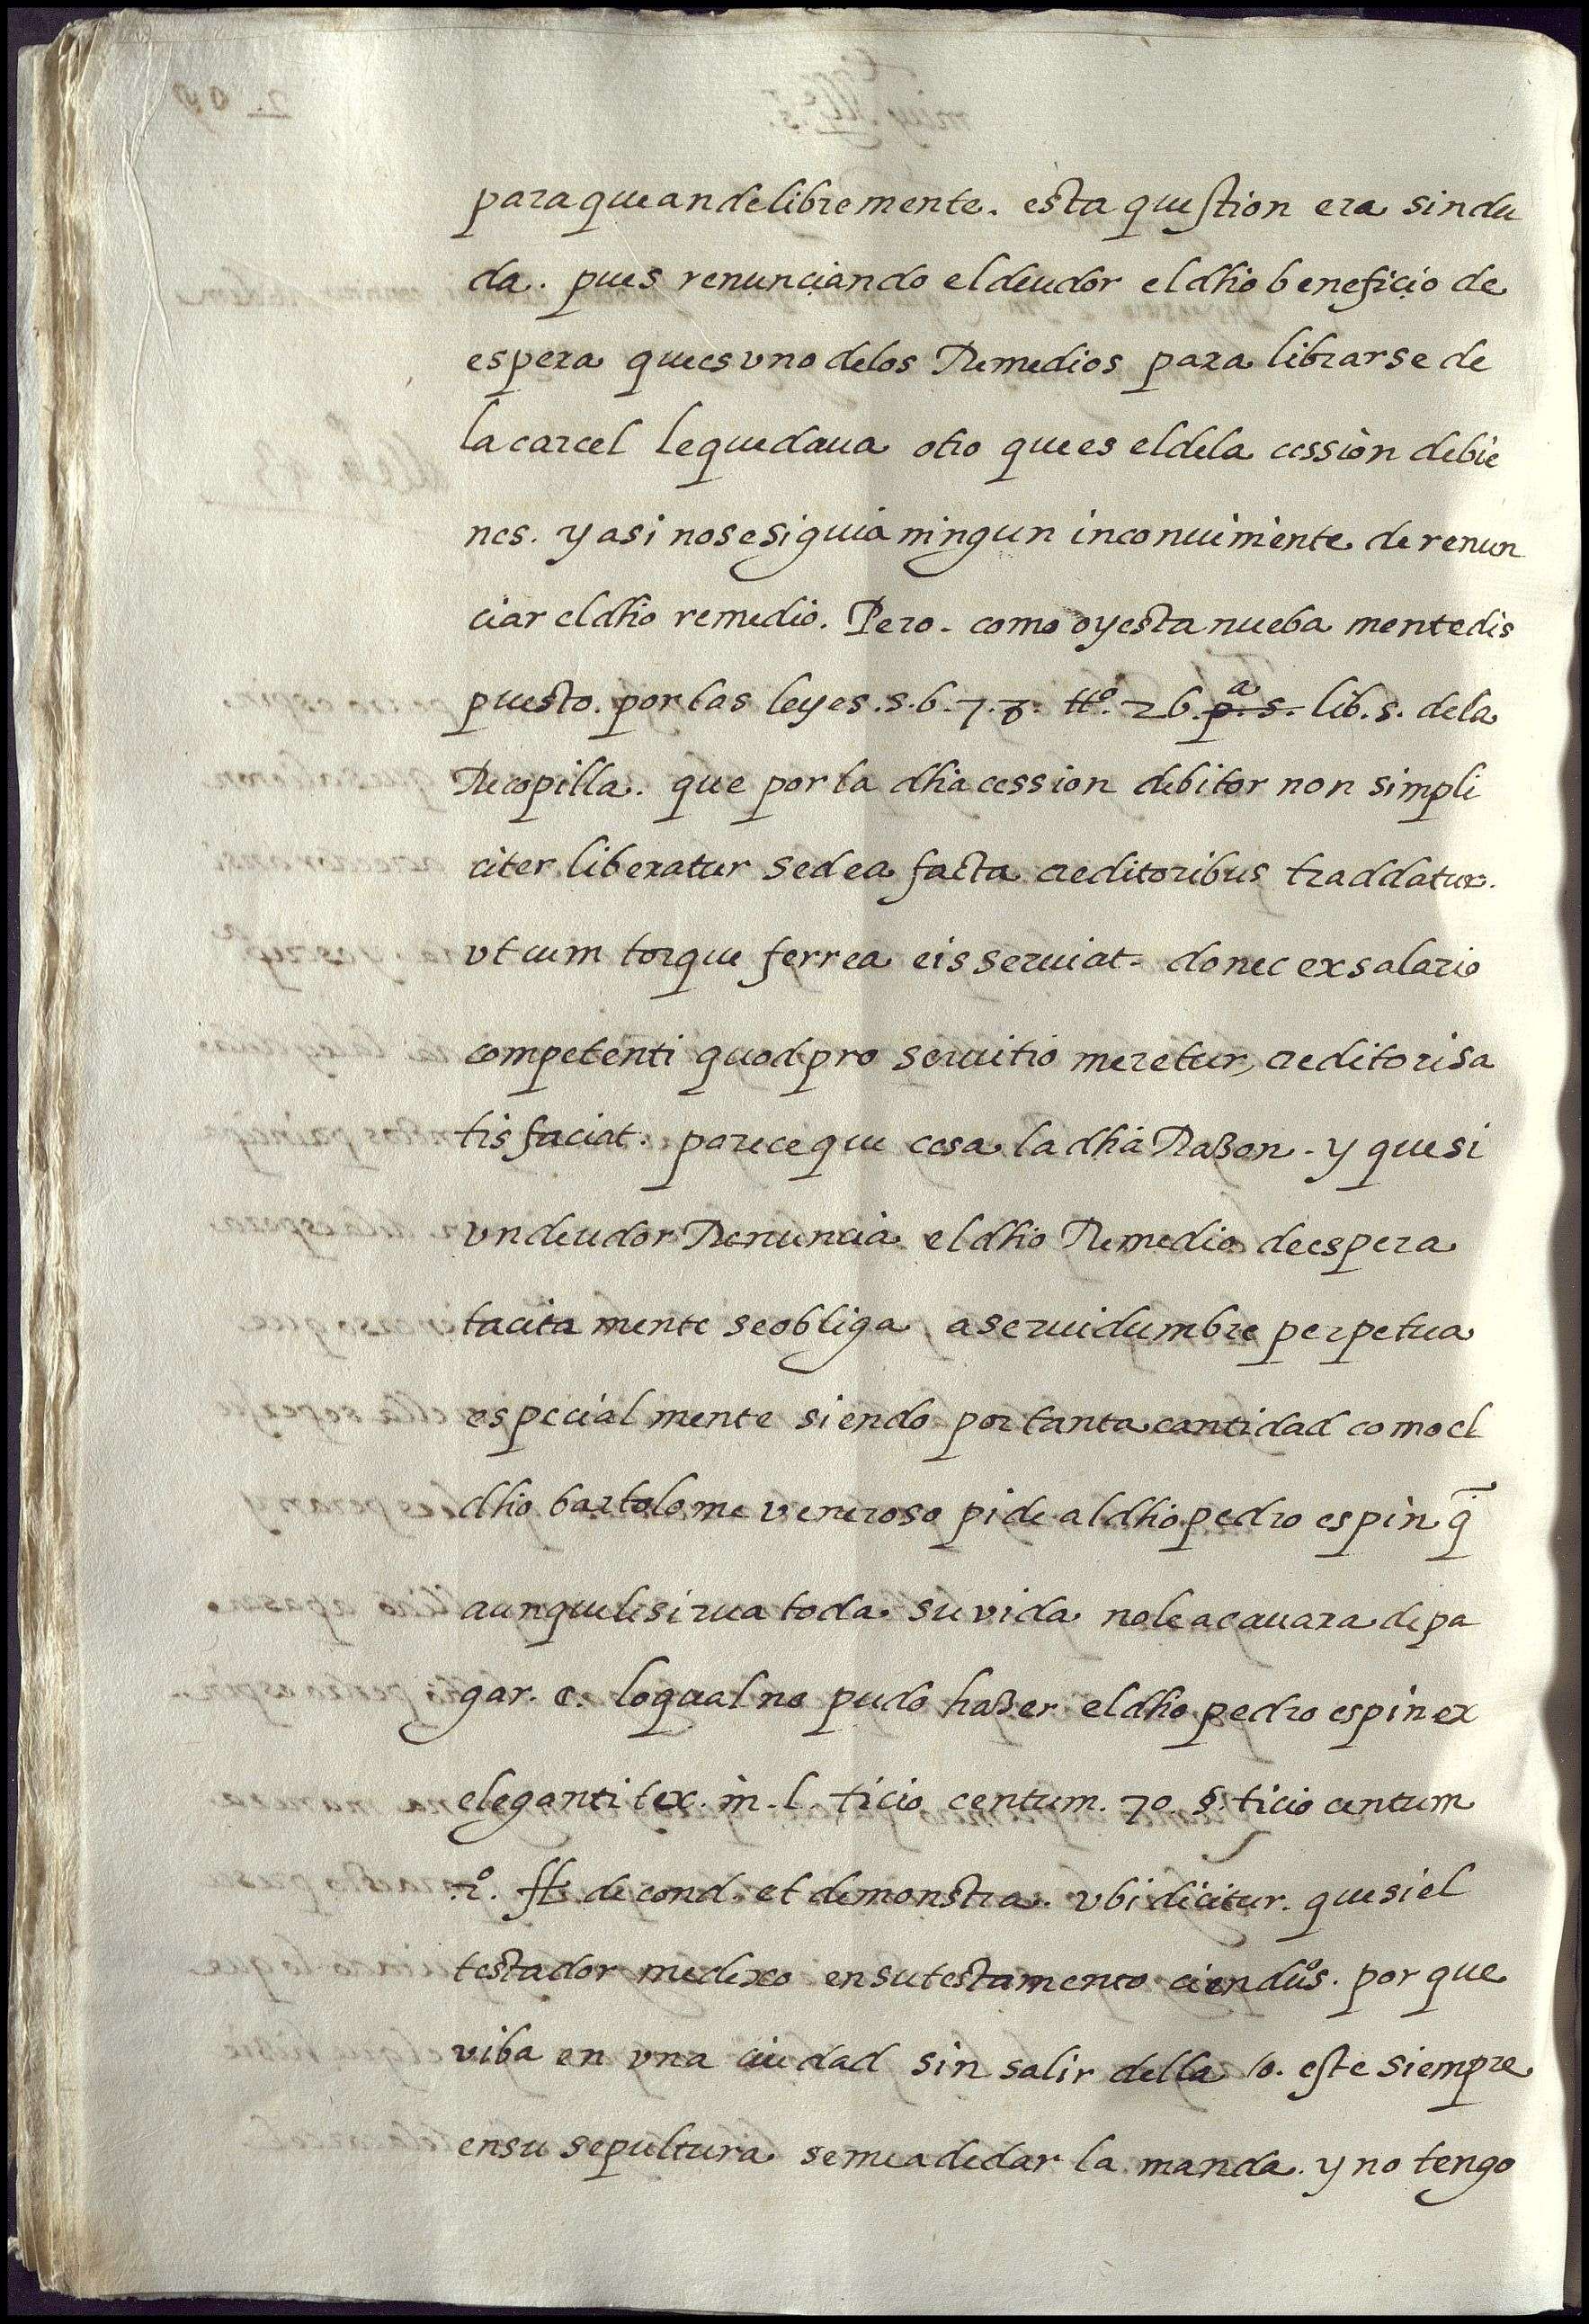 para que ande libremente. esta question era sin du
da. pues renunciando el deudor el dho beneficio de
espera que es vno de los Remedios para librarse de
la carcel le quedaua otro que es el de la cession de bie
nes. y asi no se siguia ningun inconuiniente de renun
ciar el dho remedio. Pero. como oy esta nueba mente dis
puesto. por las leyes. s. 6. 7. 8. tto. 26. lib. s. de la
Recopilla. que por la dha cession debitor non simpli
citer liberatur sed ea facta creditoribus traddatur.
vt cum torque ferrea eis seruiat. donec ex salario
competenti quod pro seruitio meretur, creditori sa
tisfaciat. parece que cesa la dha Razon. y que si
vn deudor Renuncia el dho Remedio de espera
tacita mente se obliga a seruidumbre perpetua
especial mente siendo por tanta cantidad como el
dho bartolome veneroso pide al dho pedro espin q̄
aunque le sirua toda su vida no le acauara de pa
gar. e. lo qual no pudo hazer el dho pedro espin ex
eleganti tex. in. l. ticio centum. 70. §. ticio centum
2º. ff. de cond. et demonstra. vbi dicitur. que si el
testador me dexo en su testamento cien dus. por que
viba en vna ciudad sin salir della /o. este siempre
en su sepultura se me a de dar la manda. y no tengo